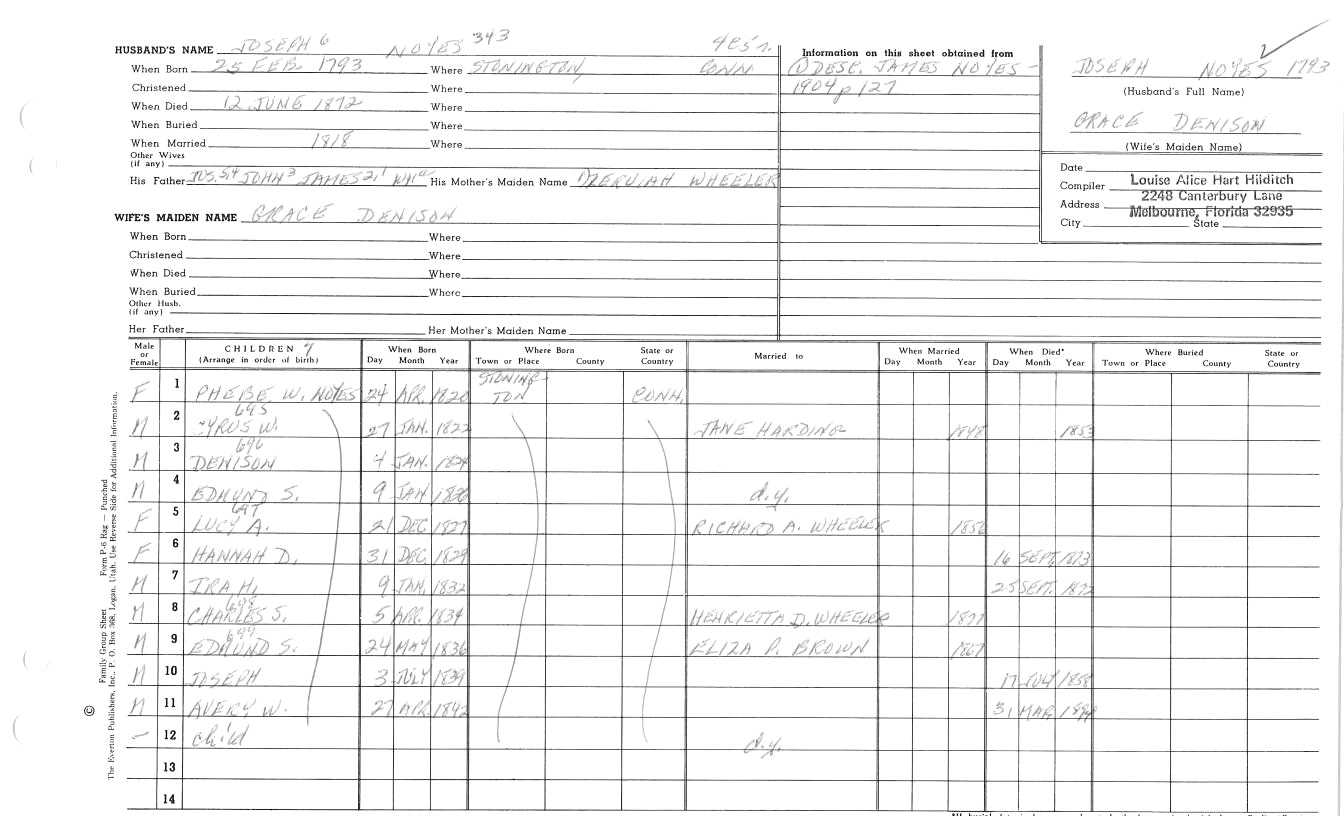 HUSBAND'S NAME JOSEPH 6 NOYES 343
When Born 25 FEB. 1793 Where STONINGTON, CONN
Christened Where
When Died 12 JUNE 1872 Where
When Buried Where
When Married 1818 Where
Other Wives
(if any)
His Father JOS. 5,4 JOHN 3 JAMES 2,1 His Mother's Maiden Name WHEELER
WIFE'S MAIDEN NAME GRACE DENISON
When Born Where
Christened Where
When Died Where
When Buried Where
Other Husb.
(if any)
Her Father Her Mother's Maiden Name
Information on this sheet obtained from
① DESC. JAMES NOYES -
1904 p 127
2
JOSEPH NOYES 1793
(Husband's Full Name)
GRACE DENISON
(Wife's Maiden Name)
Date
Compiler Louise Alice Hart Hilditch
Address 2248 Canterbury Lane
Melbourne, Florida 32935
City State
Male or Female CHILDREN 7 (Arrange in order of birth) When Born Day Month Year Where Born Town or Place County State or Country Married to When Married Day Month Year When Died* Day Month Year Where Buried Town or Place County State or Country
F 1 PHEBE W. NOYES 24 APR. 1820 STONINGTON CONN.
695
M 2 CYRUS W. 27 JAN. 1822 JANE HARDING 1848 1853
696
M 3 DENISON 4 JAN. 1824
M 4 EDMUND S. 9 JAN d.y.
697
F 5 LUCY A. 21 DEC. 1827 RICHARD A. WHEELER 1856
F 6 HANNAH D. 31 DEC. 1829 16 SEPT. 1873
M 7 IRA H. 9 JAN. 1832 25 SEPT. 1872
698
M 8 CHARLES S. 5 APR. 1834 HENRIETTA D. WHEELER
699
M 9 EDMUND S. 24 MAY 1836 ELIZA P. BROWN 1867
M 10 JOSEPH 3 JULY 1839 17 JULY 1858
M 11 AVERY W. 27 APR. 1842 31 MAR.
- 12 child d.y.
13
14
Family Group Sheet Form P-6 Rag — Punched
© The Everton Publishers, Inc., P. O. Box 368, Logan, Utah. Use Reverse Side for Additional Information.